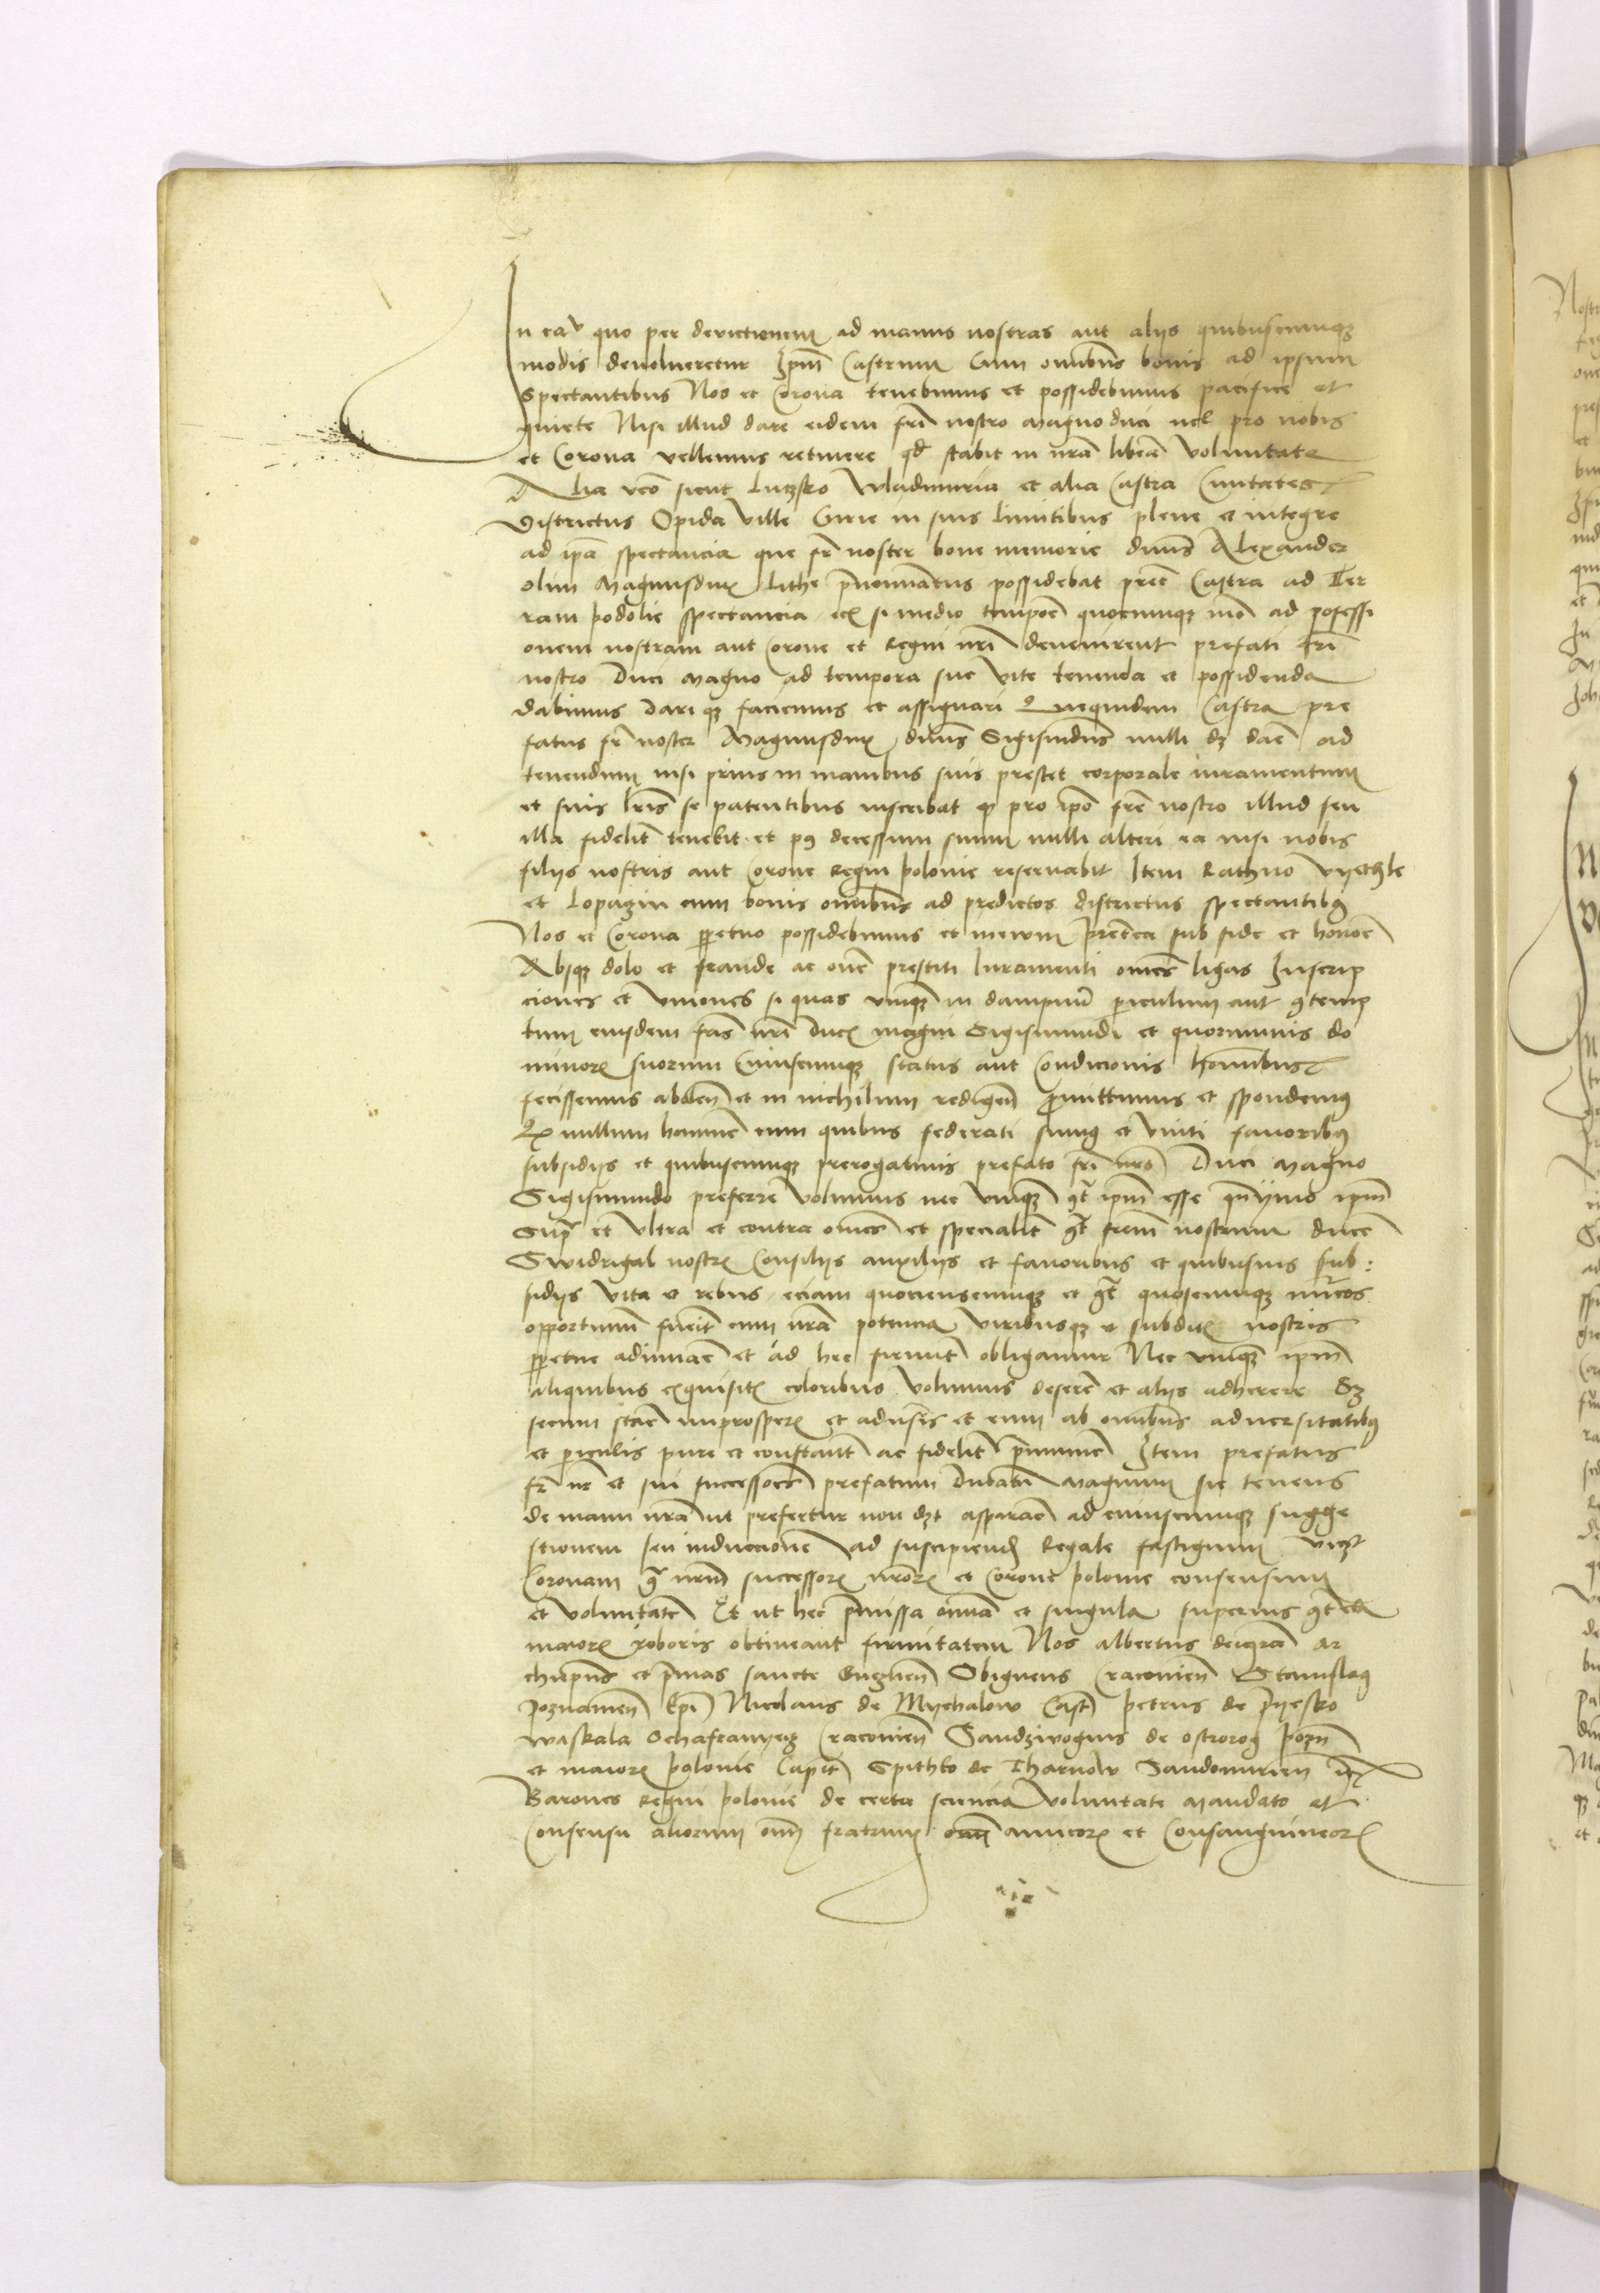 In eav quo per devictionem ad manus nostras aut alijs quibuscumqz
modis devolveretur Ipm Castrum Cum omnibus bonis ad ipsum
Spectantibus Nos et Corona tenebimus et possidebimus pacifice et
quiete Nisi illud dare eidem fri nostro Magno duci vel pro nobis
et Corona vellemus retinere qd stabit in nra libera Voluntate
Alia vero sicut Luczsko Wladimiria et alia Castra Civitates
Districtus Opida Ville Curie in suis limitibus plene et integre
ad ipa spectancia que fr noster bone memorie dnus Alexander
olim Magnusdux Lithe prenominatus possidebat preter Castra ad Ter
ram podolie spectancia etc si medio tempore quocumqz mo ad possessi
onem nostram aut Corone et Regni nri devenirent prefati fri
nostro Duci Magno ad tempora sue Vite tenenda et possidenda
dabimus dariqz faciemus et assignari Quequidem Castra pre
fatus fr noster Magnusdux dnus Sigismudus nulli dz dare ad
tenendum nisi prius in manibus suis prestet corporale iuramentum
et suis lris se patentibus inscribat qz pro ipo fre nostro illud seu
illa fidelit tenebit et post decessum suum nulli alteri ea nisi nobis
filijs nostris aut Corone Regni polonie reservabit Item Rathno Vyethle
et Lopazin cum bonis omnibus ad predictos districtus spectantibus
Nos et Corona perpetuo possidebimus et meram preterea sub fide et honore
Absqz dolo et fraude ac onere prestiti Iuramenti omnes ligas Inscrip
ciones et Vniones si quas vnqz in dampnum periculum aut contemp
tum eiusdem fris nri Ducis magni Sigismundi et quorumvis do
minorum suorum Cuiuscumqz status aut Condicionis hominibus
fecissemus abolen et in nichilum redigen promittimus et spondemus
Qz nullum hominem cum quibus federati sumus et Vniti favoribus
subsidijs et quibuscumqz prerogativis prefato fri nro Duci Magno
Sigismundo preferre Volumus nec Vnqz contra ipm esse quinymo ipm
Supra et Vltra et contra omnes et specialit contra frem nostrum ducem
Swidrigal nostris Consilijs auxilijs et favoribus et quibusvis sub:
sidijs Vita et rebus eciam quociescumqz et contra quoscumqz inimicos
opportunum fuerit cum nra potencia Viribusqz et subditis nostris
perpetue adiuvare et ad hec firmit obligamur Nec vnqz ipm
aliquibus exquisitis coloribus Volumus deserere et alijs adherere Sz
secum stare in prosperis et adversis et eum ab omnibus adversitatibus
et periculis pure et constant ac fidelit premunire Item prefatus
fr nr et sui successores prefatum Ducatum Magnum sic tenens
de manu nra ut prefertur non dzt aspirare ad cuiuscumqz sugge
stionem seu induccionem ad suscipiend Regale fastigium viczt
Coronam contra nrum successorum nrorum et Corone polonie consensum
et voluntatem Et ut hec premissa omnia et singula superius contenta
maioris roboris obtineant firmitatem Nos albertus dei gra Ar
chiepus et primas sancte Gnezhen Sbigneus Cracovien Stanislaus
Poznanien Epi Nicolaus de Mychalow Cast Petrus de Pyesko
waskala Schafranyecz Cracovien Sandziwogius de ostrorog pozn
et maioris polonie Capit Spithko de Tharnow Sandomirien etc
Barones Regni polonie de certa sciencia Voluntate Mandato et
Consensu aliorum omnium fratrum amicorum et Consanguineorum